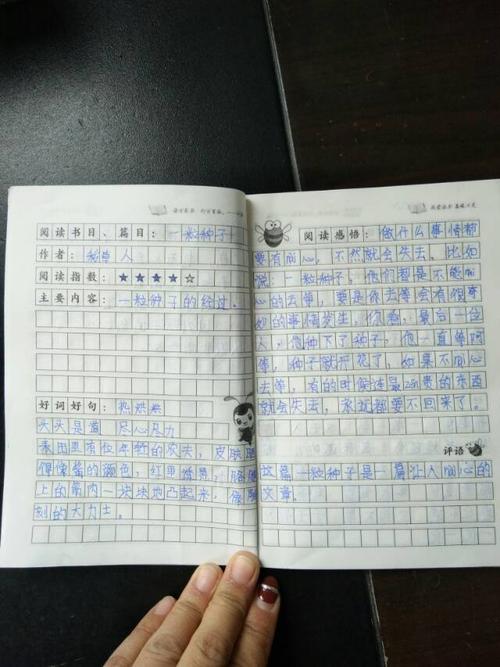 阅读书目、篇目：一粒种子
作者：稻草人
阅读指数：★★★★☆
主要内容：一粒种子的经过。
好词好句：热烘烘
头头是道 尽心尽力
麦田里有位年轻的农夫，皮肤
酱的颜色，红里
上的筋肉一块块地凸起来，像
刻的大力士。
阅读感悟：做什么事情都
要有耐心，不然就会失去。比如
说：一粒种子，他们都是不能耐
心的去等，要是你去等会有很奇
妙的事情发生，你看，最后一位
人，他种下了种子，他一直等阿
等，种子就开花了，如果不耐心
去等，有的时候连最珍贵的东西
就会失去，永远都要不回来了。
评语
这篇一粒种子是一篇让人耐心的
文章。